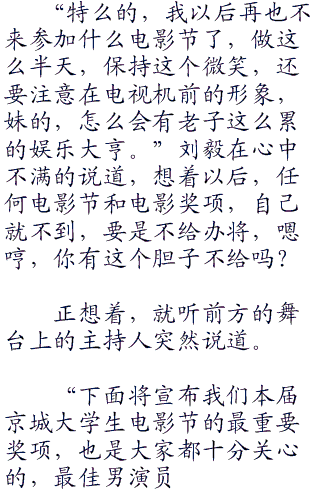 “特么的，我以后再也不
来参加什么电影节了，做这
么半天，保持这个微笑，还
要注意在电视机前的形象，
妹的，怎么会有老子这么累
的娱乐大亨。”刘毅在心中
不满的说道，想着以后，任
何电影节和电影奖项，自己
就不到，要是不给办将，嗯
哼，你有这个胆子不给吗？
正想着，就听前方的舞
台上的主持人突然说道。
“下面将宣布我们本届
京城大学生电影节的最重要
奖项，也是大家都十分关心
的，最佳男演员